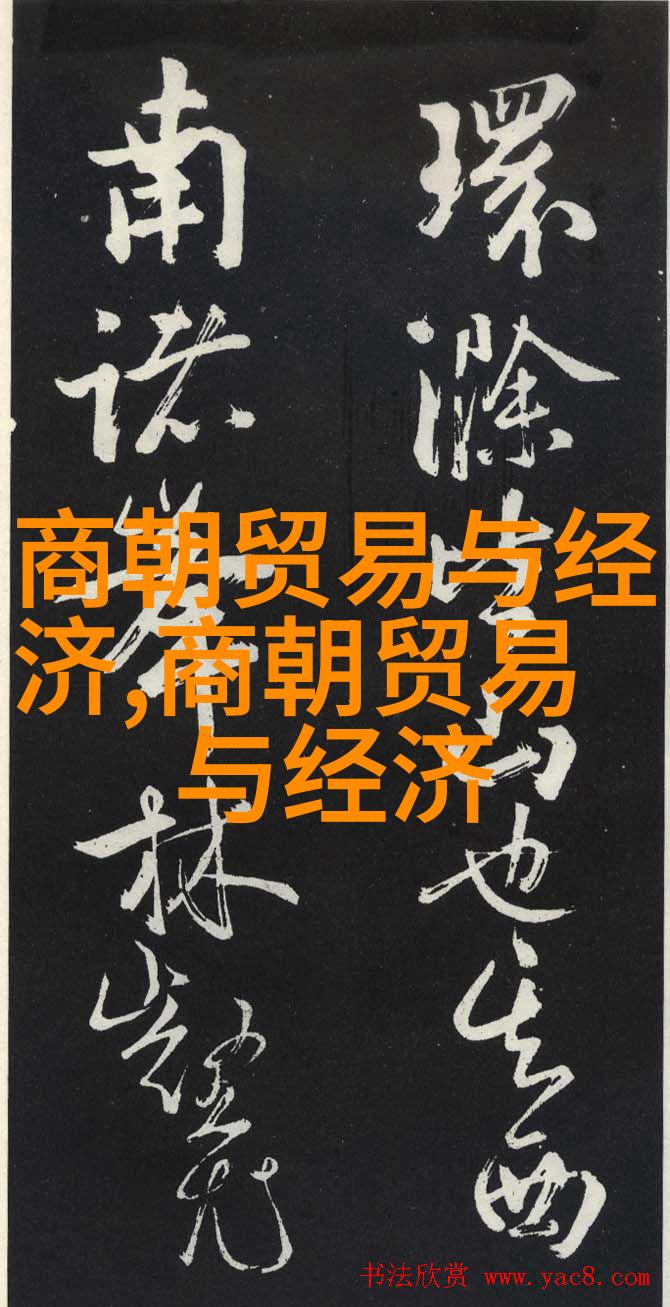 環滁皆山也其西
南諸峯林壑尤
商朝贸易与经
济,商朝贸易
与经济
书法欣赏 www.yac8.com